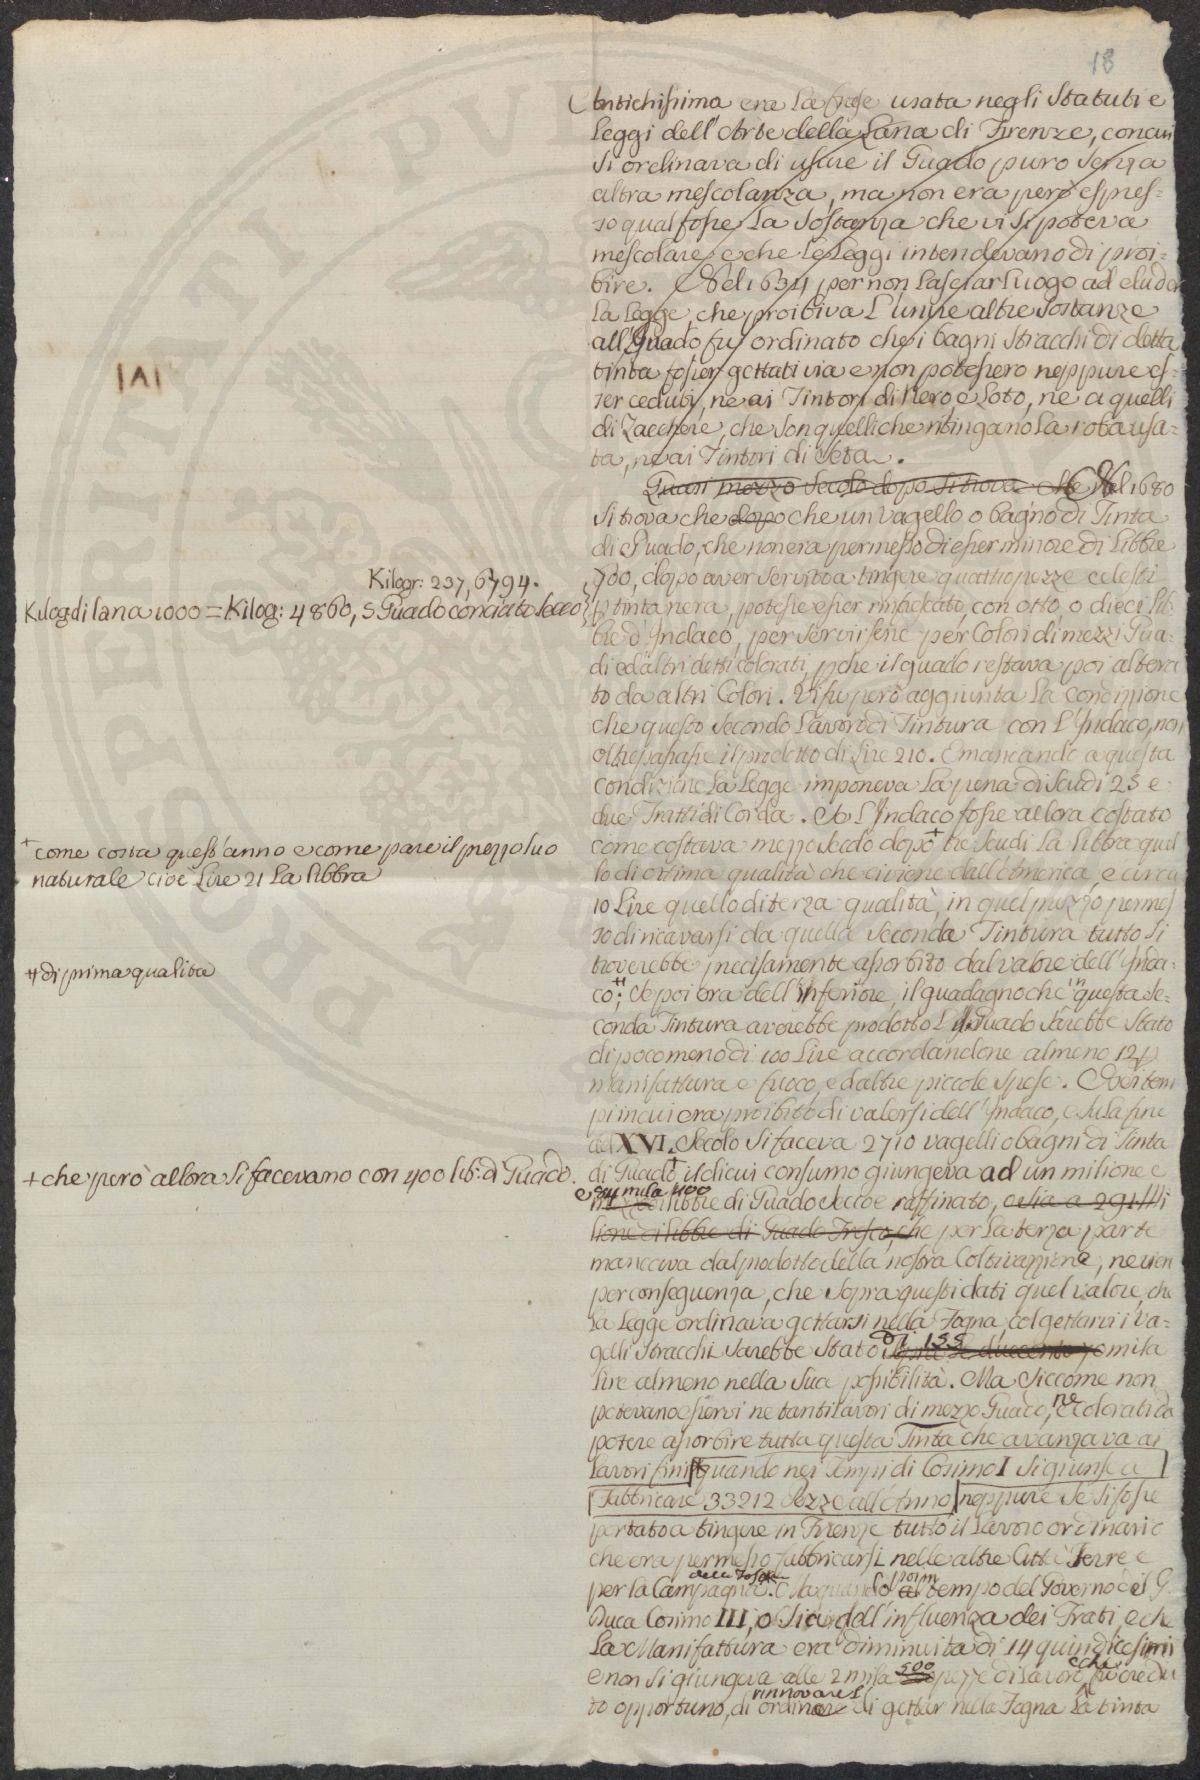 18
Antichissima era la frase usata negli Statuti e
Leggi dell'Arte della Lana di Firenze, con cui
si ordinava di usare il Guado puro senza
altra mescolanza, ma non era però espres=
so qual fosse la sostanza che vi si poteva
mescolare, e che le Leggi intendevano di proi=
bire. Nel 1634 per non lasciar luogo ad eluder
la Legge, che proibiva l'unire altre sostanze
all'Guado fu ordinato che i bagni stracchi di detta
tinta fosser gettati via e non potessero neppure es=
ser ceduti, ne ai Tintori di Nero, e Loto, ne a quelli
di Zacchere, che son quelli che ritingano la roba usa=
ta, ne ai Tintori di Seta.
|A|
Quasi mezzo secolo dopo si trova che Nel 1680
si trova che dopo che un vagello o bagno di Tinta
di Guado, che non era permesso di esser minore di Libbre
Kilogr: 237,6794.
700, dopo aver servito a tingere quattro pezze celesti
Kilog: di lana 1000 = Kilog: 4860,5 Guado conciato secco
p tinta nera, potesse esser rinfrescato, con otto o dieci lib
bre d'Indaco, per servirsene per Colori di mezzi Gua=
di ed altri detti colorati, pche il guado restava poi altera
to da altri Colori. Vi fu però aggiunta la condizione
che questo secondo lavoro di Tintura con l'Indaco, non
oltrepassasse il prodotto di Lire 210. E mancando a questa
condizione la Legge imponeva la pena di Scudi 25 e
due Tratti di Corda. Se l'Indaco fosse allora costato
come costava mezzo secolo dopo + tre Scudi la libbra quel
+ come costa quest'anno e come pare il prezzo suo
naturale cioè Lire 21 la libbra
lo di ottima qualità che ci viene dall'America, e circa
10 Lire quello di terza qualità, in quel prezzo permes
so di ricavarsi da quella seconda Tintura tutto si
troverebbe precisamente assorbito dal valore dell'Inda=
++ di prima qualita
co ++; Se poi era dell'inferiore, il guadagno che in questa se=
conda Tintura averebbe prodotto l Guado sarebbe stato
di poco meno di 100 Lire accordandone almeno 12 p
manifattura e fuoco, ed altre piccole spese. Nei tem
pi in cui era proibito di valersi dell'Indaco, e sula fine
del XVI. Secolo si faceva 2710 vagelli o bagni di Tinta
+ che però allora si facevano con 400 lib: di Guado.
di Guado +, il di cui consumo giungeva ad un milione e
84 mila 400
libbre di Guado secco e raffinato, o sia a 29 Mi
lione di libbre di Guado Fresco, che per la terza parte
mancava dal prodotto della nostra Coltivazione, ne vien
per conseguenza, che sopra questi dati quel valore, che
la Legge ordinava gettarsi nella Fogna, col gettarvi i va=
gelli stracchi sarebbe stato di 155 mila
Lire almeno nella sua possibilità. Ma siccome non
potevano esservi ne tanti lavori di mezzo Guado, ne Colorati da
potere assorbire tutta questa Tinta che avanzava ai
lavori fini quando nei Tempi di Cosimo I si giunse a
fabbricare 33212 Pezze all'Anno neppure se si fosse
portato a tingere in Firenze tutto il lavoro ordinario
che era permesso fabbricarsi nelle altre Città Terre e
per la Campagna della Toscana. Ma quando poi in tempo del Governo del G.
Duca Cosimo III, o sia dell'influenza dei Frati, e che
la Manifattura era diminuita di 14 quindicesimi
e non si giungeva alle 2 mila 500 pezze di lavoro e che fu credu
to opportuno, di rinnovare l' ordine di gettar nella Fogna la tinta